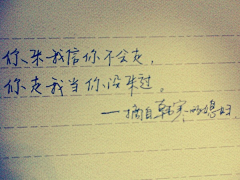 你来我信你不会走，
你走我当你没来过。
——摘自韩寒